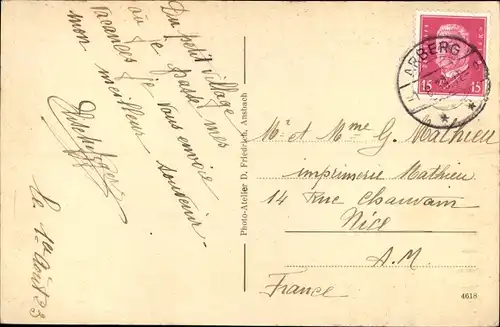 Du petit village
où je passe mes
vacances je vous envoie
mon meilleur souvenir
le 1er Août 33
Photo-Atelier D. Friedrich, Ansbach
ARBERG
15 15
Mr et Mme G. Mathieu
imprimerie Mathieu
14 Rue Chauvain
Nice
A.M.
France
4618